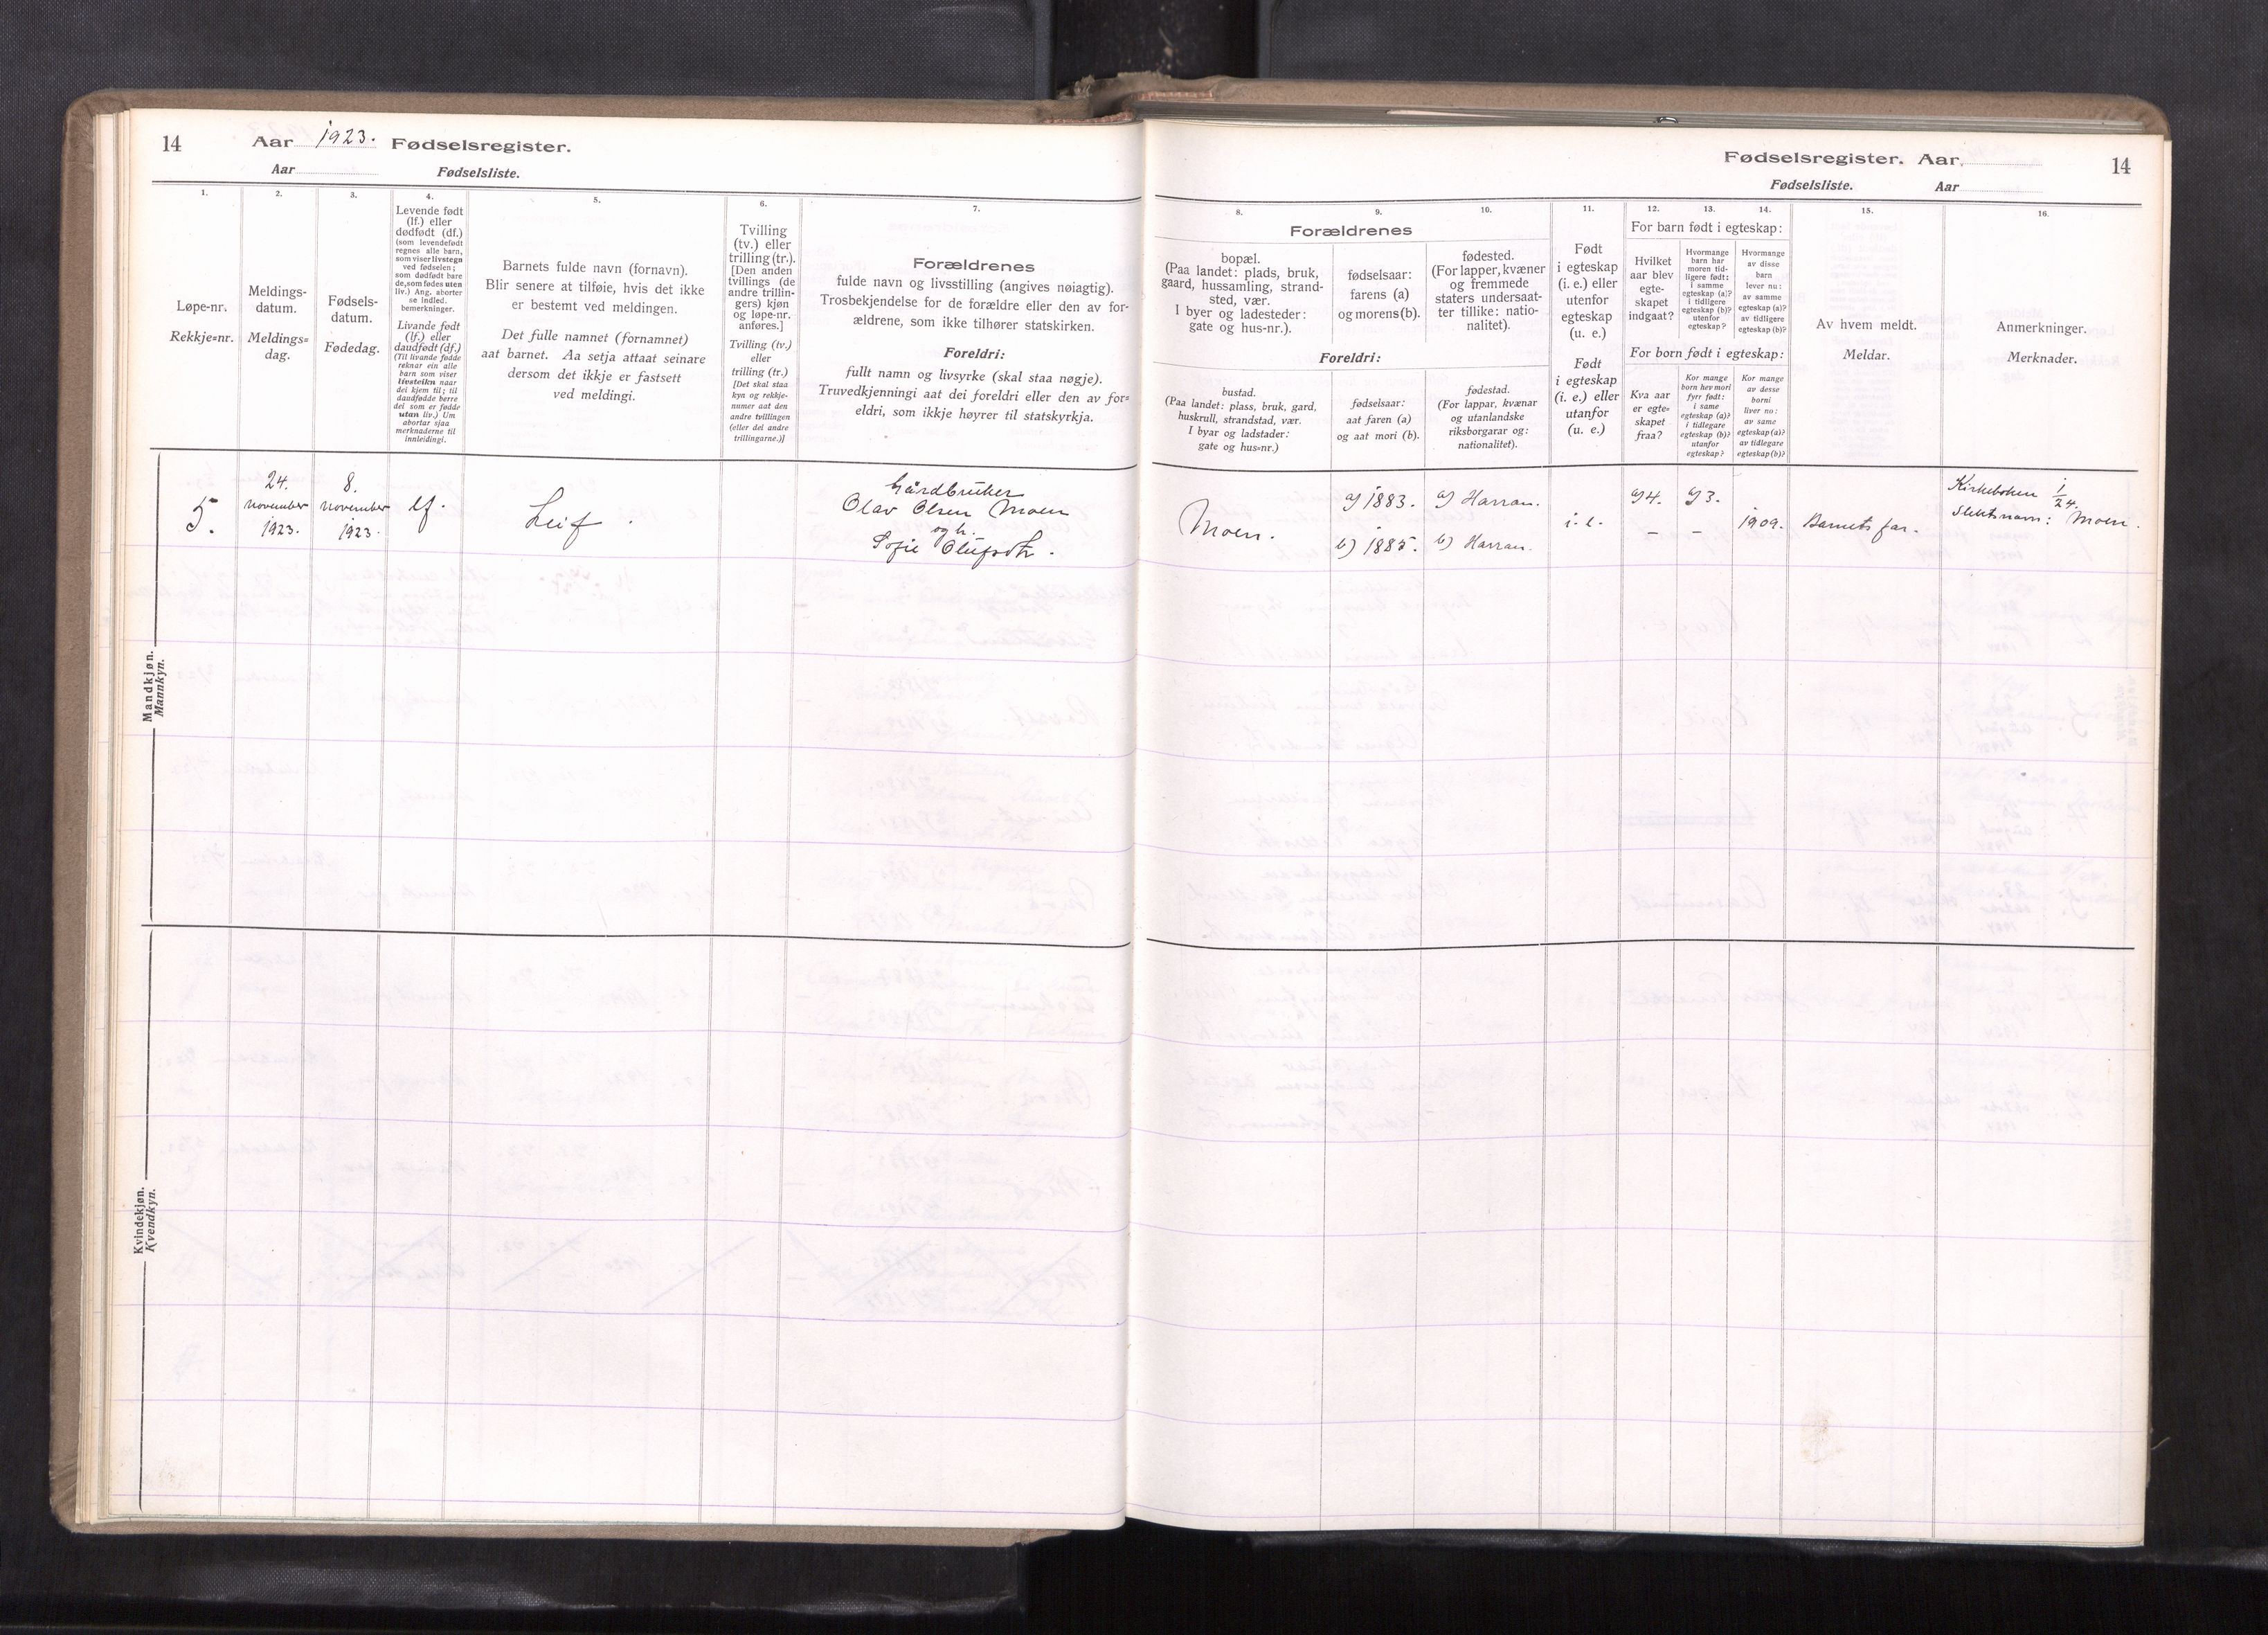 14
Aar 1923. Fødselsregister.
Aar Fødselsliste.
1.
Løpe-nr.
Rekkje=nr.
2.
Meldings-
datum.
Meldings=
dag.
3.
Fødsels-
datum.
Fødedag.
4.
Levende født
(lf.) eller
dødfødt (df.)
(som levendefødt
regnes alle barn,
som viser livstegn
ved fødselen;
som dødfødt bare
de, som fødes uten
liv.) Ang. aborter
se indled.
bemerkninger.
Livande født
(lf.) eller
daudfødt (df.)
(Til livande fødde
reknar ein alle
barn som viser
livsteikn naar
dei kjem til; til
daudfødde berre
dei som er fødde
utan liv.) Um
abortar sjaa
merknaderne til
innleidingi.
5.
Barnets fulde navn (fornavn).
Blir senere at tilføie, hvis det ikke
er bestemt ved meldingen.
Det fulle namnet (fornamnet)
aat barnet. Aa setja attaat seinare
dersom det ikkje er fastsett
ved meldingi.
6.
Tvilling
(tv.) eller
trilling (tr.).
[Den anden
tvillings (de
andre trillin-
gers) kjøn
og løpe-nr.
anføres.]
Tvilling (tv.)
eller
trilling (tr.)
[Det skal staa
kyn og rekkje-
numer aat den
andre tvillingen
(eller dei andre
trillingarne.)]
7.
Forældrenes
fulde navn og livsstilling (angives nøiagtig).
Trosbekjendelse for de forældre eller den av for-
ældrene, som ikke tilhører statskirken.
Foreldri:
fullt namn og livsyrke (skal staa nøgje).
Truvedkjenningi aat dei foreldri eller den av for=
eldri, som ikkje høyrer til statskyrkja.
Mandkjøn.
Mannkyn.
5.
24.
november
1923.
8.
november
1923.
lf.
Leif.
Gårdbruker
Olav Olsen Moen
og h.
Sofie Olufsdtr.
Kvindekjøn.
Kvendkyn.
Fødselsregister. Aar
14
Fødselsliste. Aar
8.
9.
10.
Forældrenes
bopæl.
(Paa landet: plads, bruk,
gaard, hussamling, strand-
sted, vær.
I byer og ladesteder:
gate og hus-nr.).
fødselsaar:
farens (a)
og morens (b).
fødested.
(For lapper, kvæner
og fremmede
staters undersaat-
ter tillike: natio-
nalitet).
Foreldri:
bustad.
(Paa landet: plass, bruk, gard,
huskrull, strandstad, vær.
I byar og ladstader:
gate og hus=nr.)
fødselsaar:
aat faren (a)
og aat mori (b).
fødestad.
(For lappar, kvænar
og utanlandske
riksborgarar og:
nationalitet).
11.
Født
i egteskap
(i. e.) eller
utenfor
egteskap
(u. e.)
Født
i egteskap
(i. e.) eller
utanfor
(u. e.)
12.
13.
14.
For barn født i egteskap:
Hvilket
aar blev
egte-
skapet
indgaat?
Hvormange
barn har
moren tid-
ligere født:
i samme
egteskap (a)?
i tidligere
egteskap (b)?
utenfor
egteskap?
Hvormange
av disse
barn
lever nu:
av samme
egteskap (a)?
av tidligere
egteskap (b)?
For born født i egteskap:
Kva aar
er egte=
skapet
fraa?
Kor mange
born hev mori
fyrr født:
i same
egteskap (a)?
i tidlegare
egteskap (b)?
utanfor
egteskap?
Kor mange
av desse
borni
liver no:
av same
egteskap (a)?
av tidlegare
egteskap (b)?
15.
Av hvem meldt.
Meldar.
16.
Anmerkninger.
Merknader.
Moen.
a) 1883.
b) 1885.
a) Harran.
b) Harran.
i. e.
a) 4.
–
a) 3.
–
1909.
Barnets far.
Kirkeboken 1/24.
Slektsnavn: Moen.